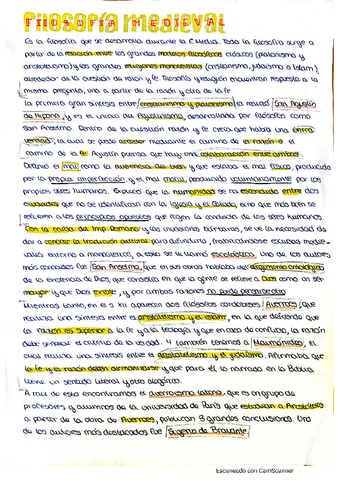 FILOSOFÍA MEDIEVAL
Es la filosofía que se desarrolla durante la E.Media. Toda la filosofía surge a
partir de la relación entre los grandes modelos filosóficos clásicos (platonismo y
aristotelismo) y las grandes religiones monoteístas (cristianismo, judaísmo o Islam)
alrededor de la cuestión de razón y fe. Filosofía y religión encuentran respuesta a la
misma pregunta, una a partir de la razón y otra de la fe.
La primera gran síntesis entre cristianismo y platonismo la realizó San Agustín
de Hipona, y es el inicio del Agustinismo, desarrollada por filósofos como
San Anselmo. Dentro de la cuestión razón y fe creía que había una única
verdad, la cual se podía acceder mediante el camino de la razón o el
camino de la fe. Agustín piensa que hay una colaboración entre ambas.
Definió el mal como la ausencia del bien y que estaba el mal físico, producido
por la propia imperfección y el mal moral, provocado voluntariamente por los
propios seres humanos. Explicó que la humanidad se ha escindido entre dos
ciudades que no se identifican con la Iglesia y el Estado, sino que más bien se
refieren a los principios opuestos que rigen la conducta de los seres humanos.
Con la caída del Imp. Romano y las invasiones bárbaras, se ve la necesidad
de a conocer la tradición cultural para difundirla,
en torno a monasterios, a esto se le llamó escolástica. Uno de los autores
más conocidos fue San Anselmo, que en sus obras hablaba del argumento ontológico
de la existencia de Dios, que consistía en que la gente se refiere a Dios como un ser
mayor y que Dios existe, y por ambas razones no puede
Mientras tanto, en el S. XII aparecen dos filósofos cordobeses: Averroes, que
realizó una síntesis entre el aristotelismo y el islam, en la que defiende que
la razón es superior a la fe y a la teología y que en caso de conflicto, la razón
debe ser el criterio de la verdad. Y también tenemos a Maimónides, el
cual realizó una síntesis entre el aristotelismo y el judaísmo. Afirmaba que
la fe y la razón deben armonizarse y que para él lo narrado en la Biblia
tiene un sentido literal y otro alegórico.
A raíz de esto encontramos el averroísmo latino, que es un grupo de
profesores y alumnos de la universidad de París que estudian a Aristóteles
a partir de la obra de Averroes, publican 3 grandes conclusiones. Uno
de los autores más destacados fue Sigerio de Brabante.
Escaneado con CamScanner